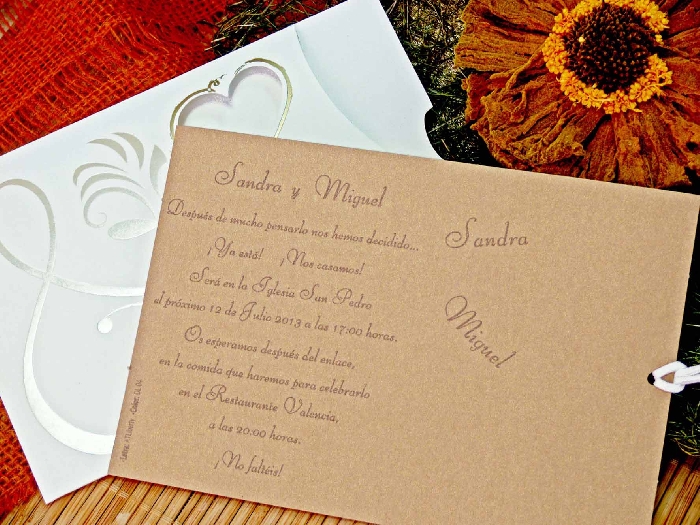 Sandra y Miguel
Después de mucho pensarlo nos hemos decidido...
¡Ya está! ¡Nos casamos!
Será en la Iglesia San Pedro
el próximo 12 de Julio 2013 a las 17:00 horas.
Os esperamos después del enlace,
en la comida que haremos para celebrarlo
en el Restaurante Valencia,
a las 20:00 horas.
¡No faltéis!
Sandra
Miguel